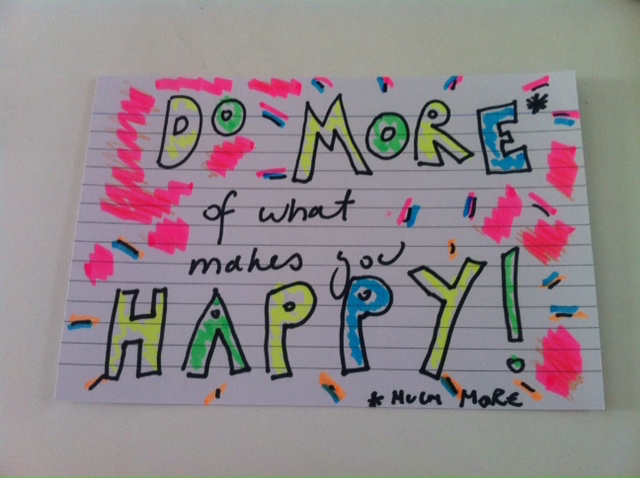 DO MORE*
of what
makes you
HAPPY!
*MUCH MORE